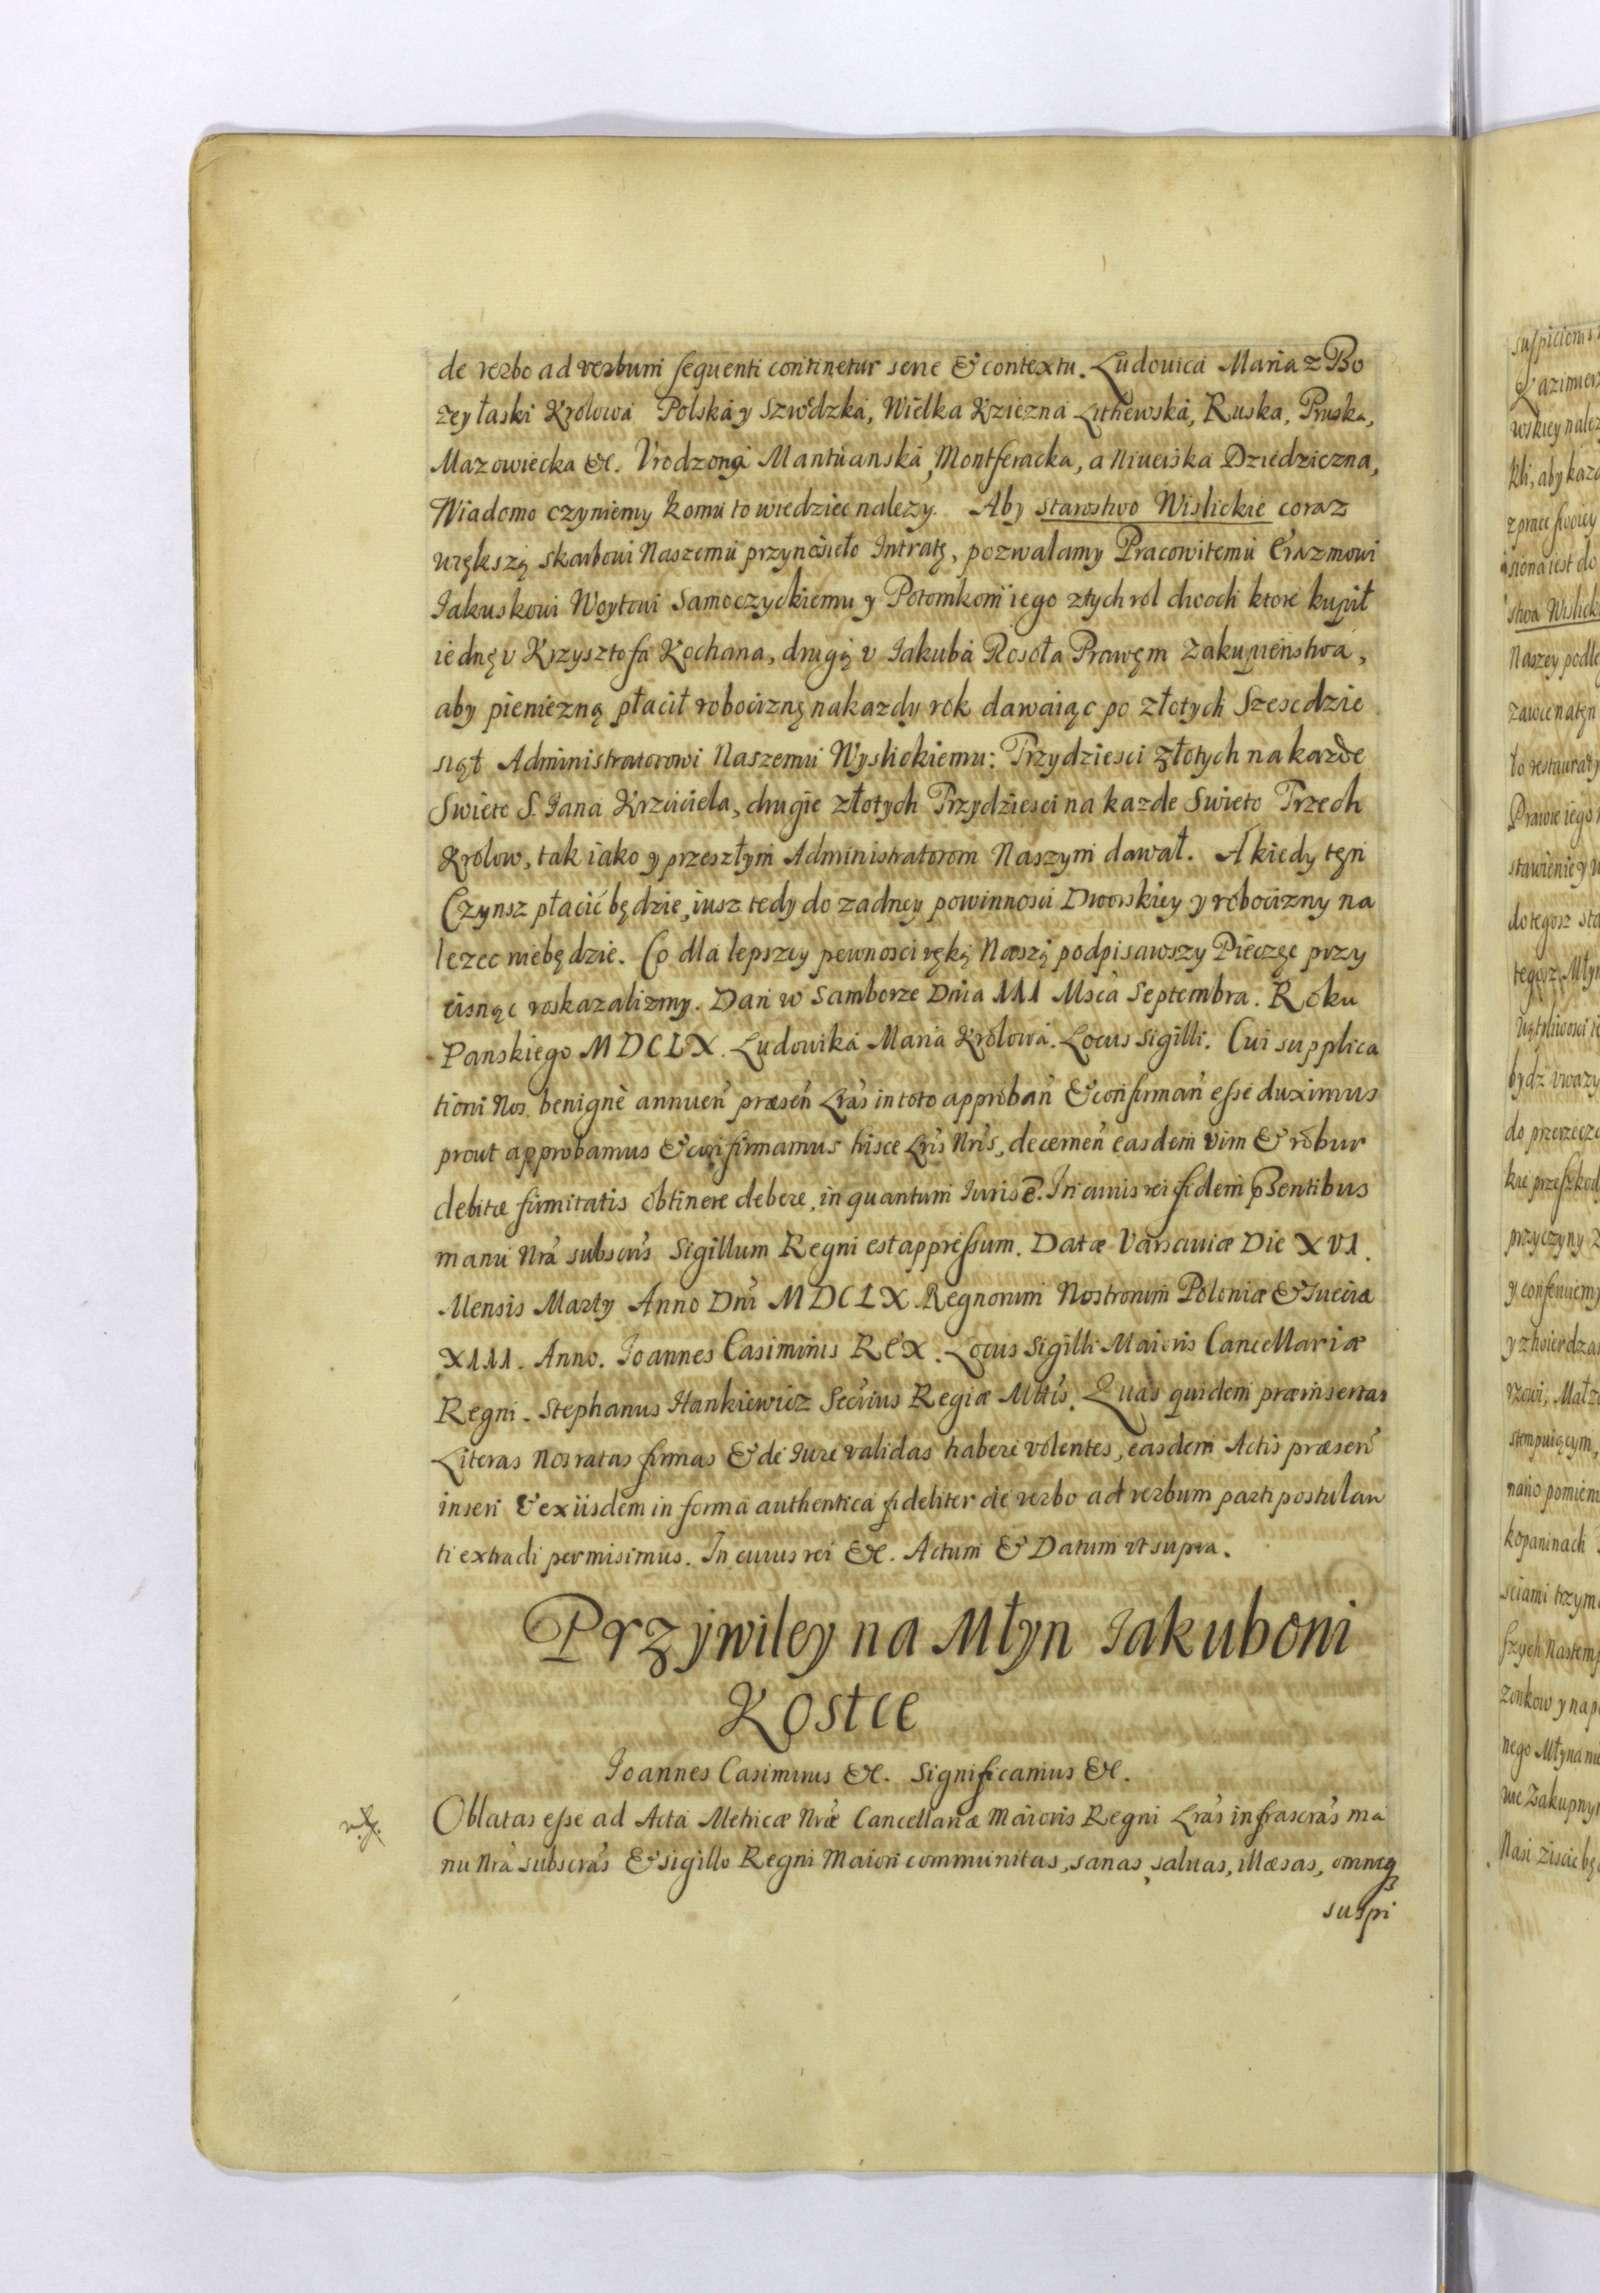 de verbo ad verbum sequenti continetur serie & contextu. Ludouica Maria z Bo
zey łaski Krolowa Polska y Szwedzka, Wielka Xziezna Lithewska, Ruska, Pruska,
Mazowiecka &c. Vrodzona Mantuanska, Montferacka, a Niuerska Dziedziczna,
Wiadomo czyniemy komu to wiedziec nalezy. Aby starostwo Wislickie coraz
większą skarbowi Naszemu przynosieło Intratę, pozwalamy Pracowitemu Erazmowi
Iakuskowi Woytowi Samoczyckiemu y Potomkom iego z tych rol dwoch ktore kupił
iednę v Krzysztofa Kochana, drugą v Iakuba Rosoła Prawęm zakupieństwa,
aby pieniezną płacił robociznę na kazdy rok dawaiąc po złotych Szescdzie
siąt Administratorowi Naszemu Wyslickiemu: Trzydziesci złotych na kazde
Swieto S. Iana Krzciciela, drugie złotych Trzydziesci na kazde Swieto Trzech
Krolow, tak iako y przeszłym Administratorom Naszym dawał. A kiedy tęn
Czynsz płacić będzie, iusz tedy do zadney powinnosci Dworskiey y robocizny na
lezec niebędzie. Co dla lepszey pewnosci ręką Naszą podpisawszy Pieczęc przy
cisnąc roskazalizmy. Dan w Samborze Dnia III Msca Septembra. Roku
Panskiego MDCLX. Ludowika Maria Krolowa. Locus Sigilli. Cui supplica
tioni Nos benignè annueń præseń Lrãs in toto approbań & confirmań esse duximus
prout approbamus & confirmamus hisce Lris Nris, decerneń easdem vim & robur
debitæ firmitatis obtinere debere, in quantum Iuris ẽ. In cuius rei fidem pñsentibus
manu Nrã subscris Sigillum Regni est appressum. Datæ Varsauiæ Die XVI.
Mensis Marty Anno Dni MDCLX Regnorum Nostrorum Poloniæ & Sueciæ
XIII. Anno. Ioannes Casimirus REX. Locus Sigilli Maioris Cancellariæ
Regni. Stephanus Hankiewicz Secrius Regiæ Mttis. Quas quidem præinsertas
Literas Nos ratas firmas & de Iure validas haberi volentes, easdem Actis præseń
inseri & exiisdem in forma authentica fideliter de verbo ad verbum parti postulan
ti extradi permisimus. In cuius rei &c. Actum & Datum vt supra.
Przywiley na Młyn Iakubowi
Kostce
Ioannes Casimirus &c. Significamus &c.
Oblatas esse ad Acta Metricæ Nræ Cancellariæ Maioris Regni Lrãs infrascrãs ma
nu Nrã subscrãs & sigillo Regni Maiori communitas, sanas, saluas, illæsas, omniq
suspi